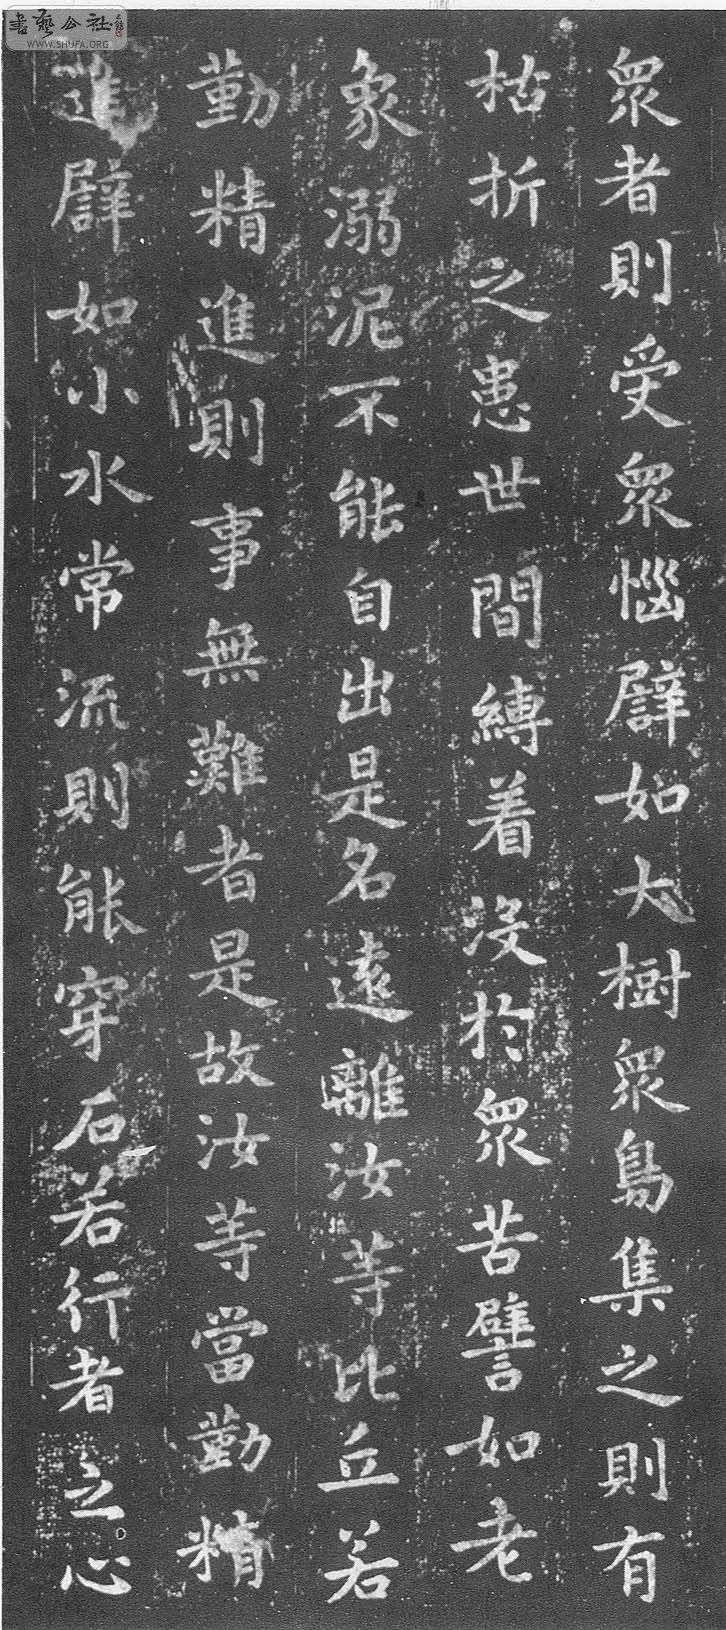 眾者則受眾惱譬如大樹眾鳥集之則有
枯折之患世間縛着没於眾苦譬如老
象溺泥不能自出是名遠離汝等比丘若
勤精進則事無難者是故汝等當勤精
進譬如小水常流則能穿石若行者之心
書藝公社
WWW.SHUFA.ORG